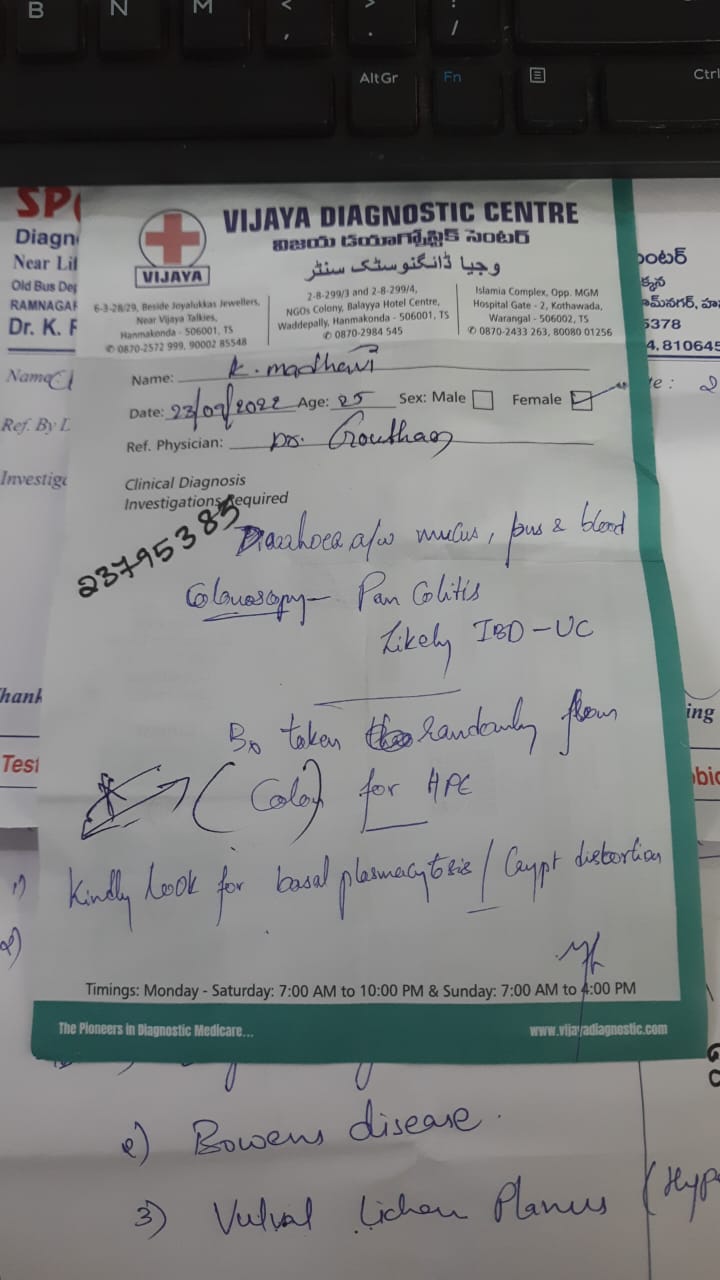 B N M < , > . ! /
AltGr Fn Ctrl
SP
Diagn
Near Lif
Old Bus Dep
RAMNAGAR
Dr. K. F
Name:
Ref. By D
Investiga
VIJAYA DIAGNOSTIC CENTRE
విజయ డయాగ్నోస్టిక్ సెంటర్
وجیا ڈائگنوسٹک سنٹر
VIJAYA
6-3-28/29, Beside Joyalukkas Jewellers,
Near Vijaya Talkies,
Hanmakonda - 506001, TS
✆ 0870-2572 999, 90002 85548
2-8-299/3 and 2-8-299/4,
NGOs Colony, Balayya Hotel Centre,
Waddepally, Hanmakonda - 506001, TS
✆ 0870-2984 545
Islamia Complex, Opp. MGM
Hospital Gate - 2, Kothawada,
Warangal - 506002, TS
✆ 0870-2433 263, 80080 01256
ెంటర్
5378
4, 810645
te: 2
Name: K. madhavi
Date: 23/09/2022 Age: 25 Sex: Male Female
Ref. Physician: Dr. Goutham
Clinical Diagnosis
Investigations Required
23795385
Diarrhoea a/w mucus, pus & blood
Colonoscopy - Pan Colitis
Likely IBD - UC
Bx taken randomly from
(Colon) for HPE
Kindly look for basal plasmacytosis / Crypt distortion
Timings: Monday - Saturday: 7:00 AM to 10:00 PM & Sunday: 7:00 AM to 4:00 PM
The Pioneers in Diagnostic Medicare... www.vijayadiagnostic.com
Thank
Test
ing
obic
1)
2)
e) Bowens disease.
3) Vulval Lichen Planus (Hyp